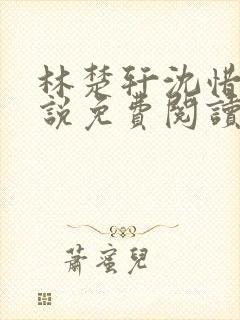 林楚轩沈惜
說免費閱讀
蕭蜜兒